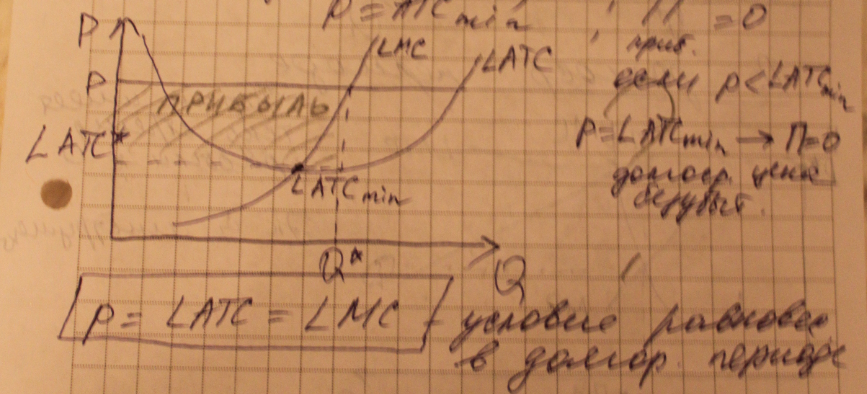 P = ATC min , П = 0
P
LMC
LATC
P
ПРИБЫЛЬ
если p < LATC min
LATC*
P = LATC min → П = 0
долгоср. цена
безубыт.
LATC min
Q*
Q
P = LATC = LMC - условие равновес
в долгоср. периоде